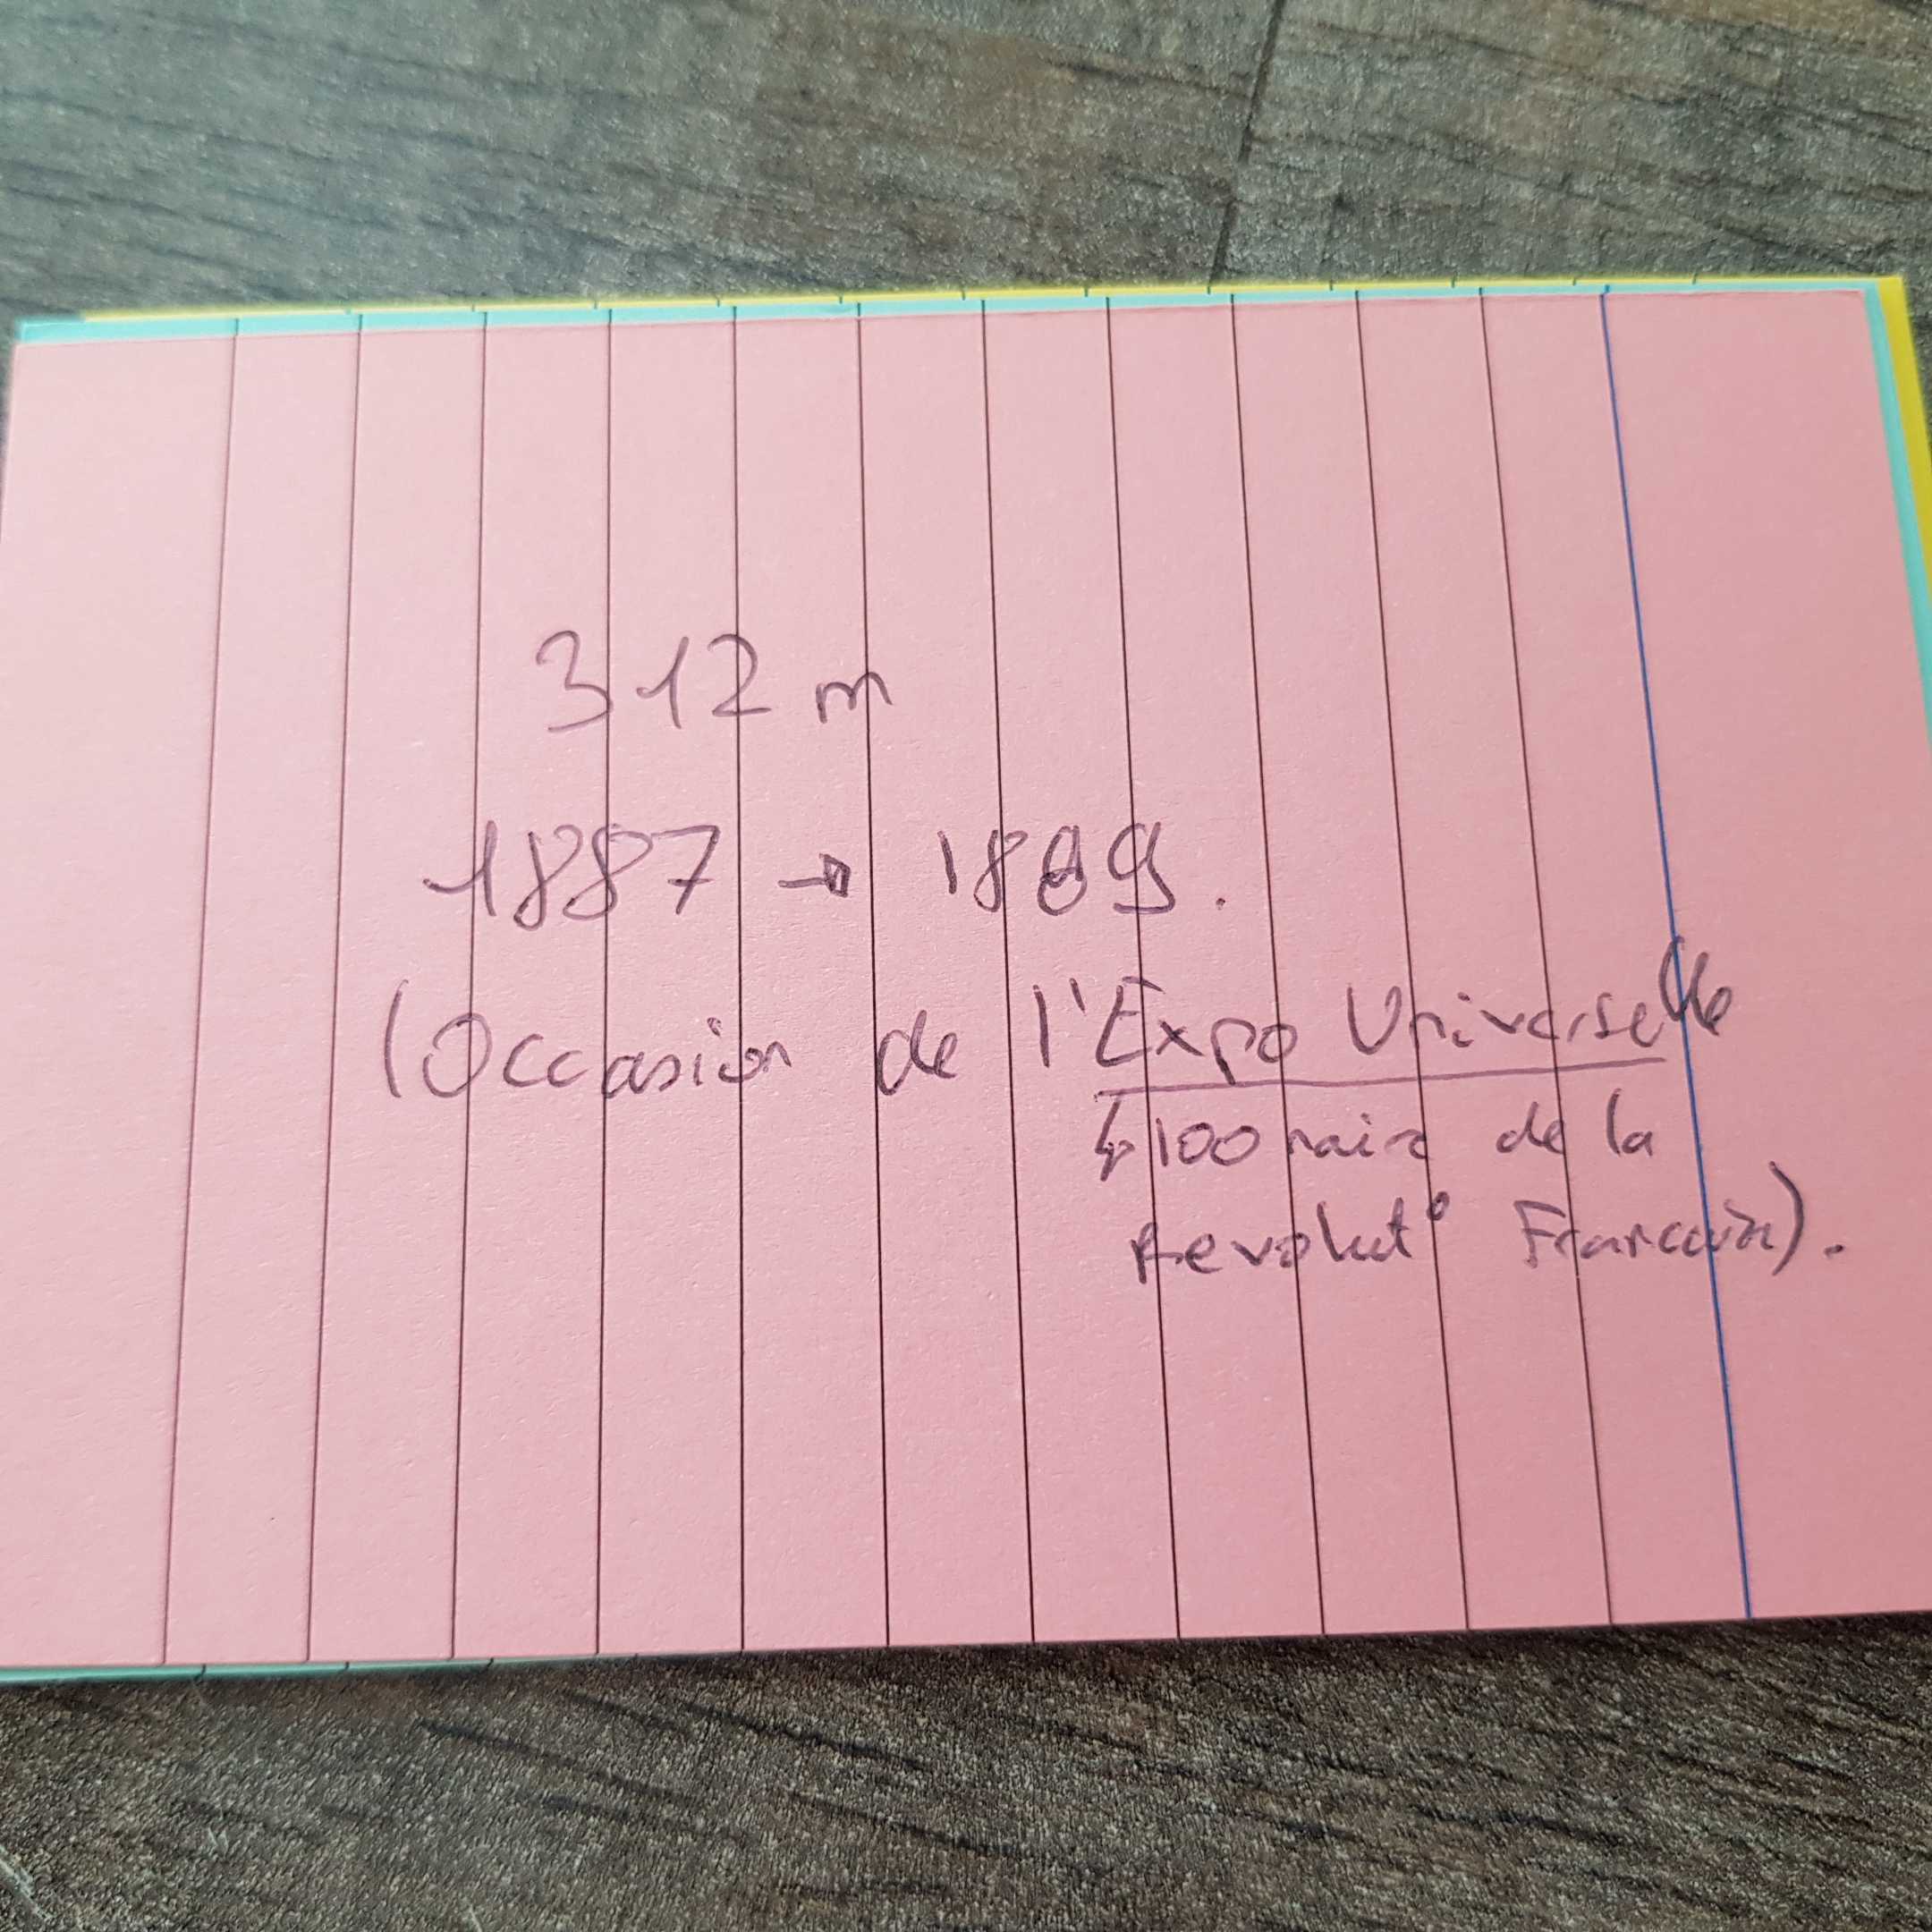 312 m
1887 → 1889.
(Occasion de l'Expo Universelle
↳ 100naire de la
Revolut° Française).